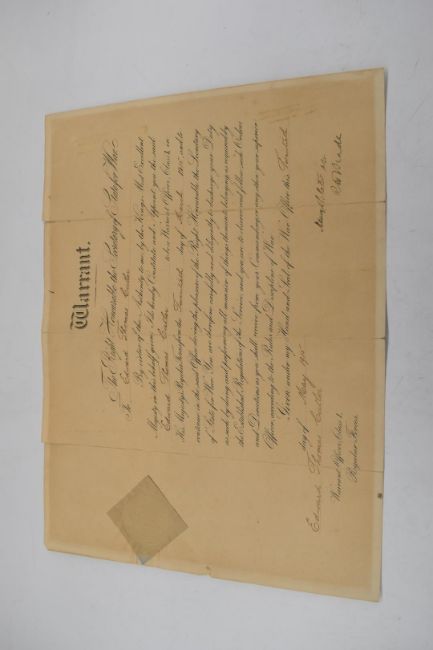 Warrant.
The Right Honourable the Secretary of State for War
To Edward Thomas Cutler
By virtue of the Authority to me by the King's Most Excellent
Majesty in this behalf given, I do hereby Constitute and Appoint you the said
Edward Thomas Cutler to be a Warrant Officer, Class 1, in
His Majesty's Regular Forces from the Twentieth day of March 1915 and to
continue in the said Office during the pleasure of the Right Honourable the Secretary
of State for War. You are therefore carefully and diligently to discharge your Duty
as such by doing and performing all manner of things thereunto belonging as required by
the Established Regulations of the Service, and you are to observe and follow such Orders
and Directions as you shall receive from your Commanding or any other your superior
Officer, according to the Rules and Discipline of War.
Given under my Hand and Seal of the War Office this Twentieth
day of May 1915
Edward Thomas Cutler
Warrant Officer, Class 1.
Regular Forces.